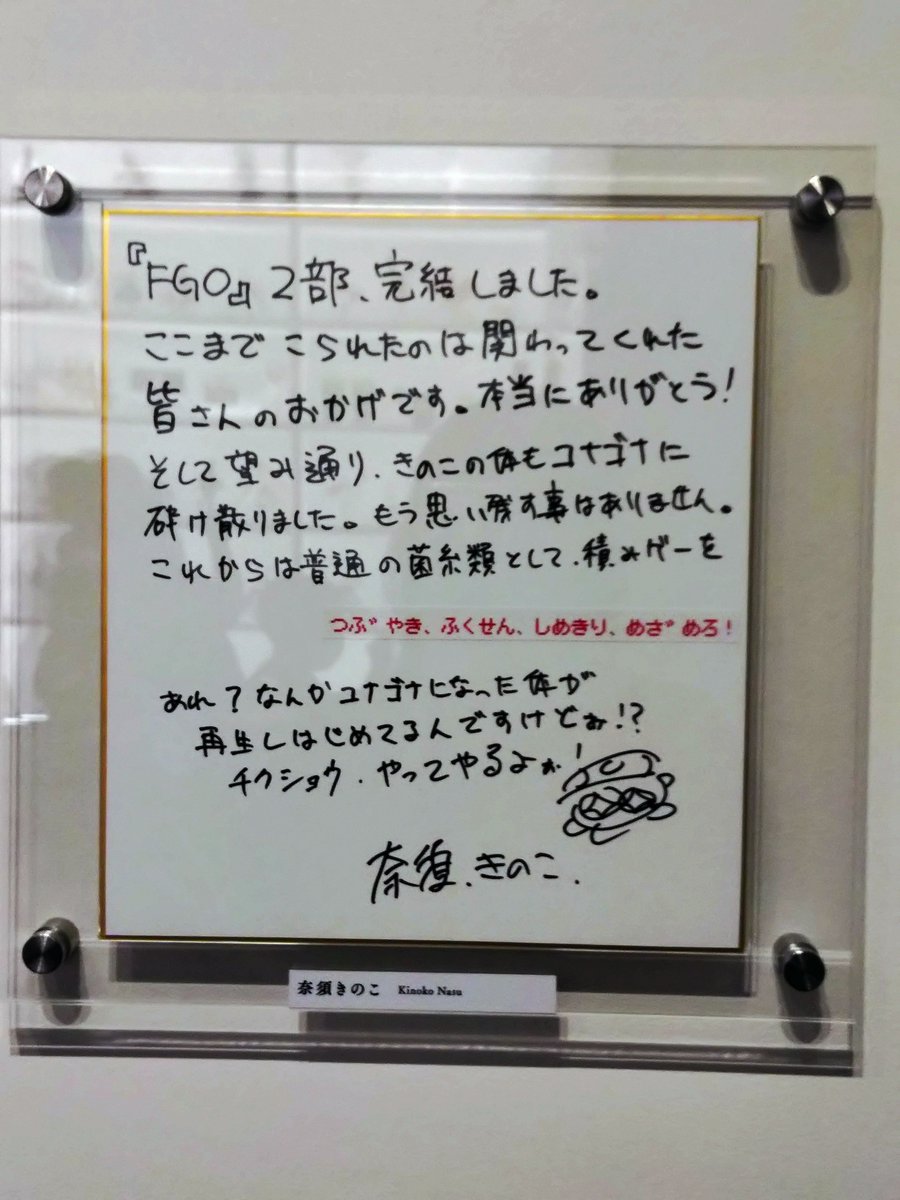 『FGO』2部、完結しました。
ここまでこられたのは関わってくれた
皆さんのおかげです。本当にありがとう!
そして望み通り、きのこの体もコナゴナに
砕け散りました。もう思い残す事はありません。
これからは普通の菌糸類として、積みゲーを
つぶやき、ふくせん、しめきり、めざめろ!
あれ?なんかコナゴナになった体が
再生しはじめてるんですけどぉ!?
チクショウ、やってやるよぉ!
奈須.きのこ.
奈須きのこ Kinoko Nasu